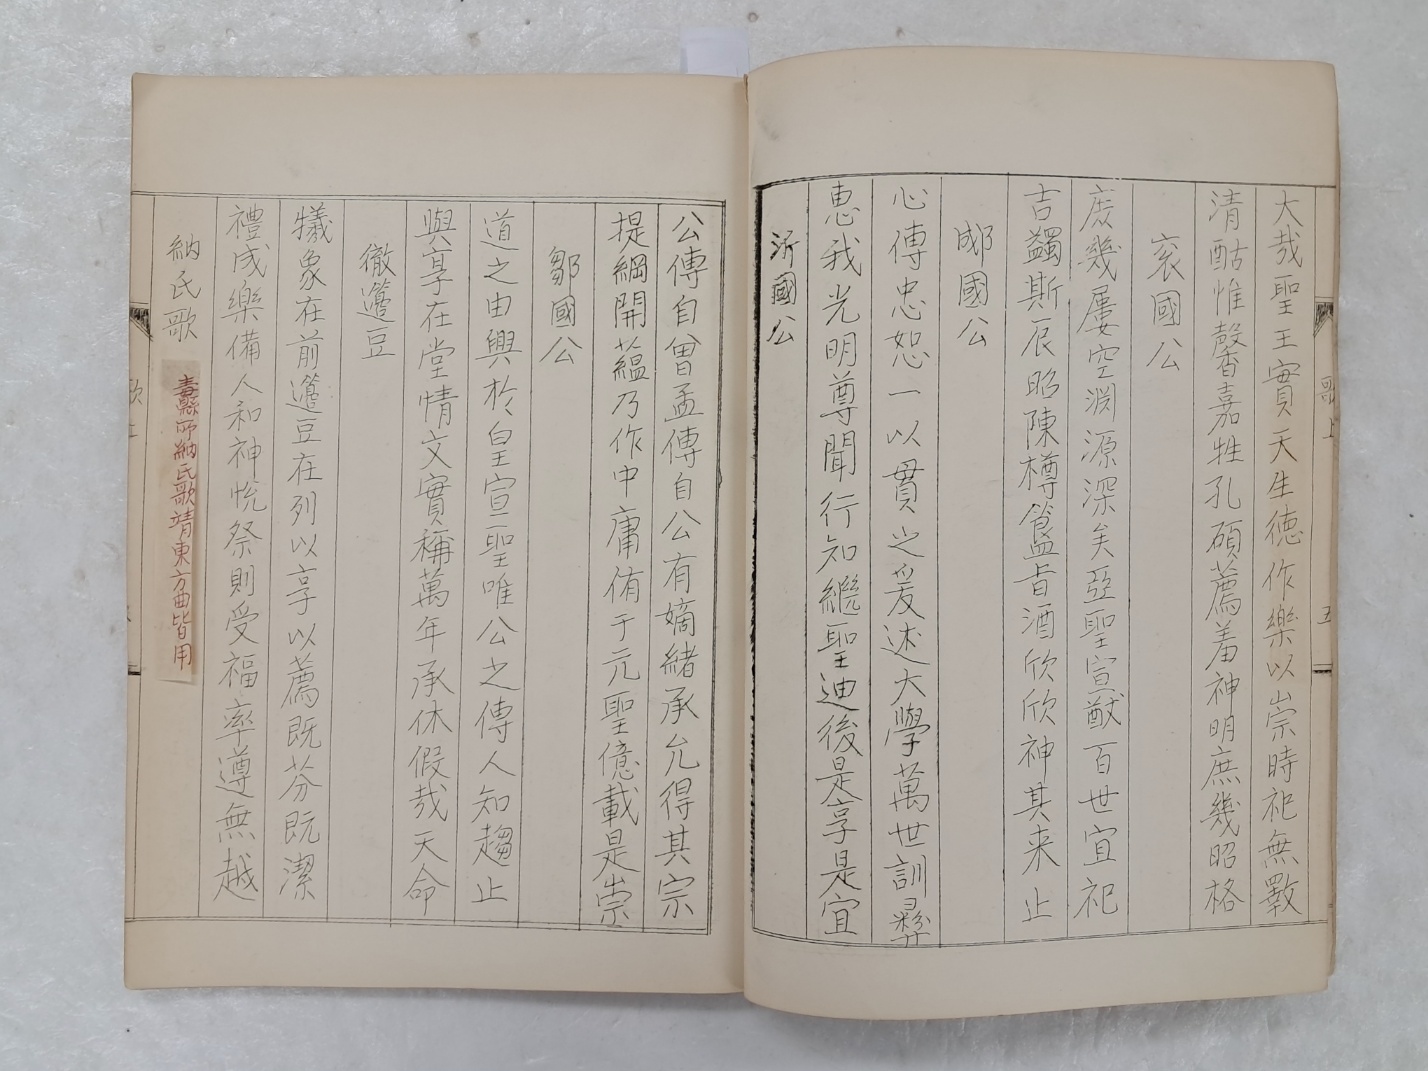 大哉聖王實天生德作樂以崇時祀無斁
清酤惟馨嘉牲孔碩薦羞神明庶幾昭格
兗國公
庶幾屢空淵源深矣亞聖宣猷百世宜祀
吉蠲斯辰昭陳樽簋旨酒欣欣神其来止
郕國公
心傳忠恕一以貫之爰述大學萬世訓彛
惠我光明尊聞行知繼聖迪後是享是宜
沂國公
公傳自曾孟傳自公有嫡緒承允得其宗
提綱開蘊乃作中庸侑于元聖億載是崇
鄒國公
道之由興於皇宣聖唯公之傳人知趨止
與享在堂情文實稱萬年承休假哉天命
徹籩豆
犧象在前籩豆在列以享以薦既芬既潔
禮成樂備人和神悅祭則受福率遵無越
納氏歌
纛師納氏歌靖東方曲皆用
歌上
五